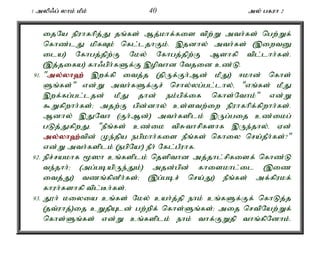 1 அலிஃப் லாம் மீம் 40 அல் பகரா 2
தையே நிராகரித்து தங்கள் ஆத்மாக்களை விற்று அவர்கள் பெற்றுக்
கொண்டது மிகவும் கெட்டதாகும். இதனால் அவர்கள் (இறைவனு
டைய) கோபத்திற்கு மேல் கோபத்திற்கு ஆளாகி விட்டார்கள்.
(இத்தகைய) காஃபிர்களுக்கு இழிவான வேதனை உண்டு.
91. "அல்லாஹ் இறக்கி வைத்த (திருக்குர்ஆன் மீது) ஈமான் கொள்
ளுங்கள்" என்று அவர்களுக்குச் சொல்லப்பட்டால், "எங்கள் மீது
இறக்கப்பட்டதன் மீது தான் நம்பிக்கை கொள்வோம்" என்று
கூறுகிறார்கள்; அதற்கு பின்னால் உள்ளவற்றை நிராகரிக்கிறார்கள்.
ஆனால் இதுவோ (குர்ஆன்) அவர்களிடம் இருப்பதை உண்மைப்
படுத்துகிறது. "நீங்கள் உண்மை விசுவாசிகளாக இருந்தால், ஏன்
அல்லாஹ்வின் முந்திய நபிமார்களை நீங்கள் கொலை செய்தீர்கள்?"
என்று அவர்களிடம் (நபியே!) நீர் கேட்பீராக.
92. நிச்சயமாக மூஸா உங்களிடம் தெளிவான அத்தாட்சிகளைக் கொண்டு
வந்தார்; (அப்படியிருந்தும்) அதன்பின் காளைமாட்டை (இணை
வைத்து) வணங்கினீர்கள்; (இப்படிச் செய்து) நீங்கள் அக்கிரமக்
காரர்களாகி விட்டீர்கள்.
93. தூர் மலையை உங்கள் மேல் உயர்த்தி நாம் உங்களுக்குக் கொடுத்த
(தவ்ராத்)தை உறுதியுடன் பற்றிக் கொள்ளுங்கள்; அதை செவியேற்றுக்
கொள்ளுங்கள் என்று உங்களிடம் நாம் வாக்குறுதி வாங்கினோம்.